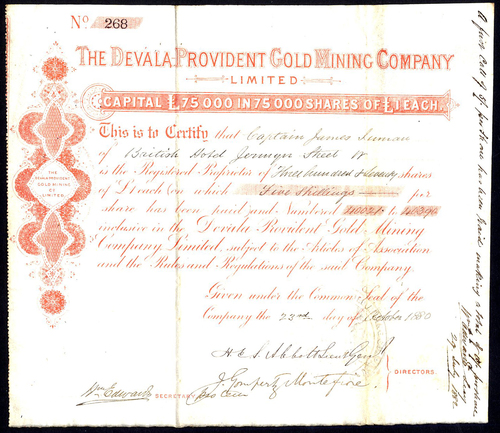 No 268
THE DEVALA PROVIDENT GOLD MINING COMPANY
LIMITED
CAPITAL £75000 IN 75000 SHARES OF £1 EACH.
This is to Certify that Captain James Inman
of British Hotel Jermyn Street W
is the Registered Proprietor of Three hundred & seventy shares
of £1 each (on which Five Shillings per
share has been paid and Numbered to
inclusive in the Devala Provident Gold Mining
Company Limited, subject to the Articles of Association
and the Rules and Regulations of the said Company.
Given under the Common Seal of the
Company the 23rd day of October 1880
THE
DEVALA PROVIDENT
GOLD MINING
CO
LIMITED.
H. E. S. Abbott
J. Gompertz Montefiore
DIRECTORS.
Wm Edwards SECRETARY
A first Call of per share has been paid making a total of per share
Wm Edwards Secy
29 July